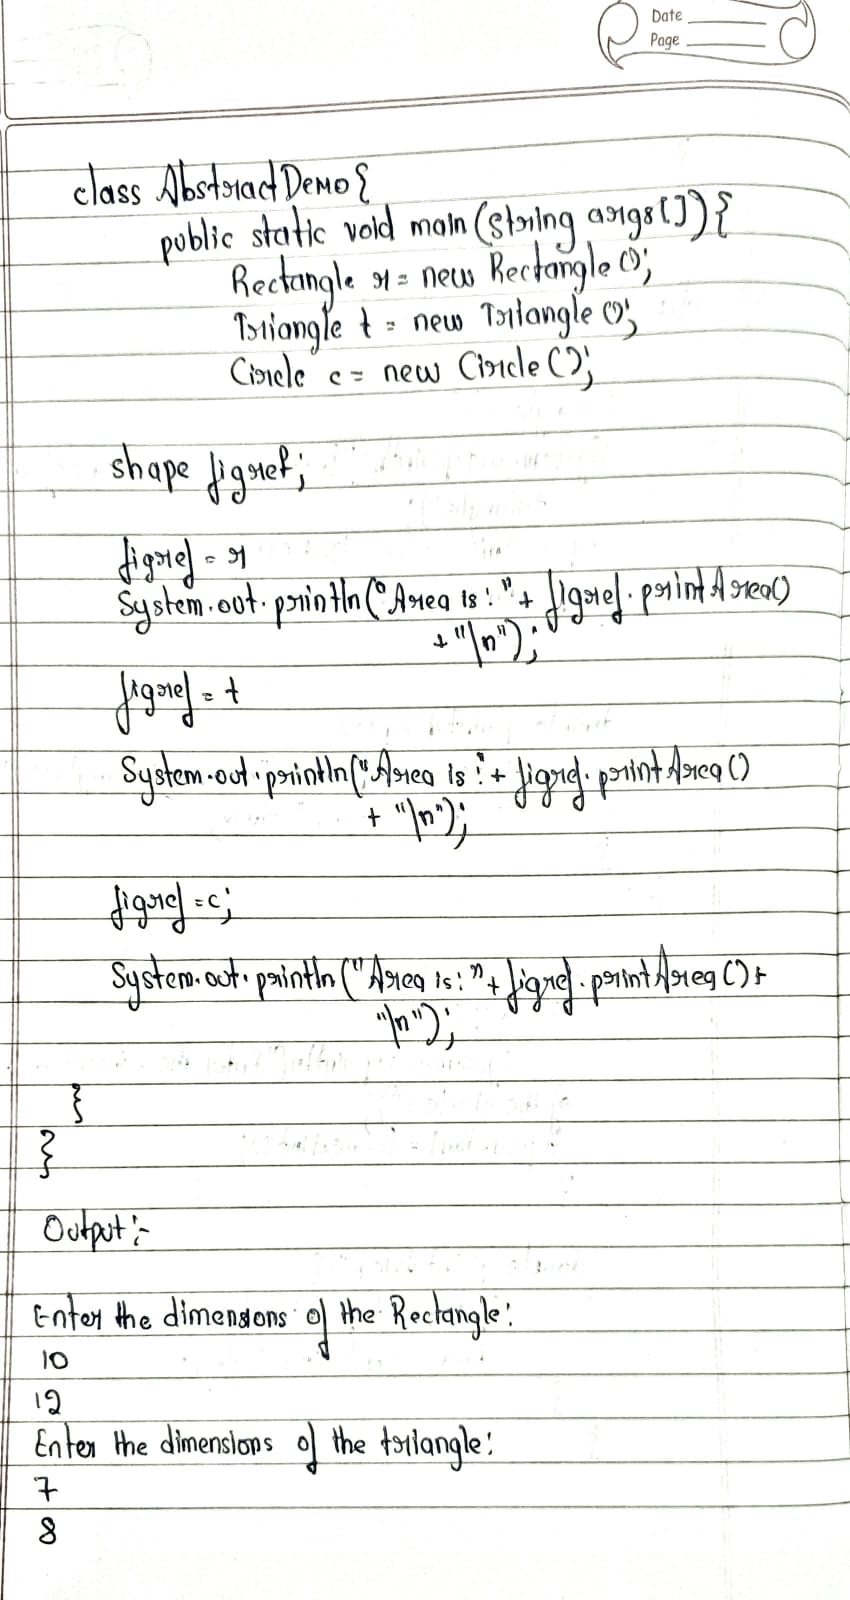 Date
Page
class AbstractDemo{
public static void main(string args[]){
Rectangle r = new Rectangle();
Triangle t = new Triangle();
Circle c = new Circle();
shape figref;
figref = r
System.out.println("Area is: "+ figref.printArea()
+ "\n");
figref = t
System.out.println("Area is: "+ figref.printArea()
+ "\n");
figref = c;
System.out.println("Area is: "+ figref.printArea()+
"\n");
}
}
Output:-
Enter the dimensions of the Rectangle:
10
12
Enter the dimensions of the triangle:
7
8